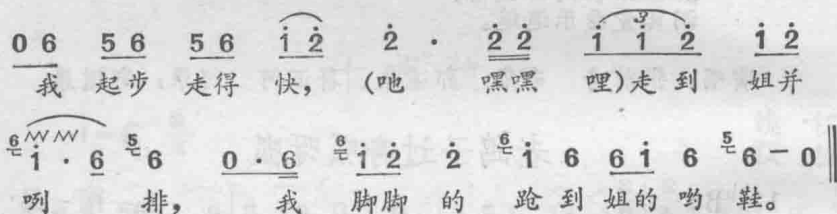 0 6 5 6 5 6 i̇ 2̇ 2̇ · 2̇ 2̇ i̇ i̇ 2̇ i̇ 2̇
我 起步 走得 快， (吔 嘿嘿 哩)走 到 姐并
6 i̇ · 6 5 6 0 · 6 6 i̇ 2̇ 2̇ 6 i̇ 6 6 i̇ 6 5 6 － 0
咧 排， 我 脚脚 的 跄 到 姐的 哟 鞋。